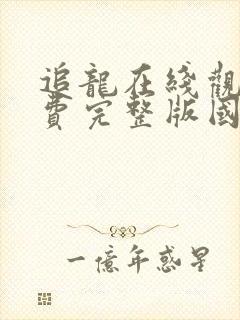 追龍在綫觀
費完整版國
一億年惑星